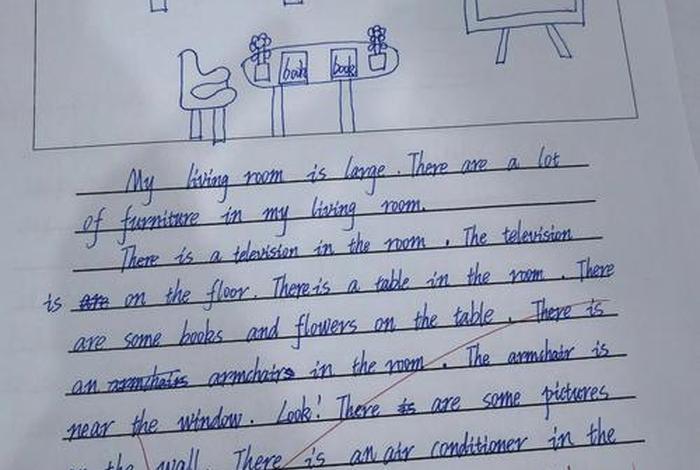 book book
My living room is large. There are a lot
of furniture in my living room.
There is a television in the room. The television
is on the floor. There is a table in the room. There
are some boobs and flowers on the table. There is
an armchair in the room. The armchair is
near the window. Look! There are some pictures
the wall. There is an air conditioner in the